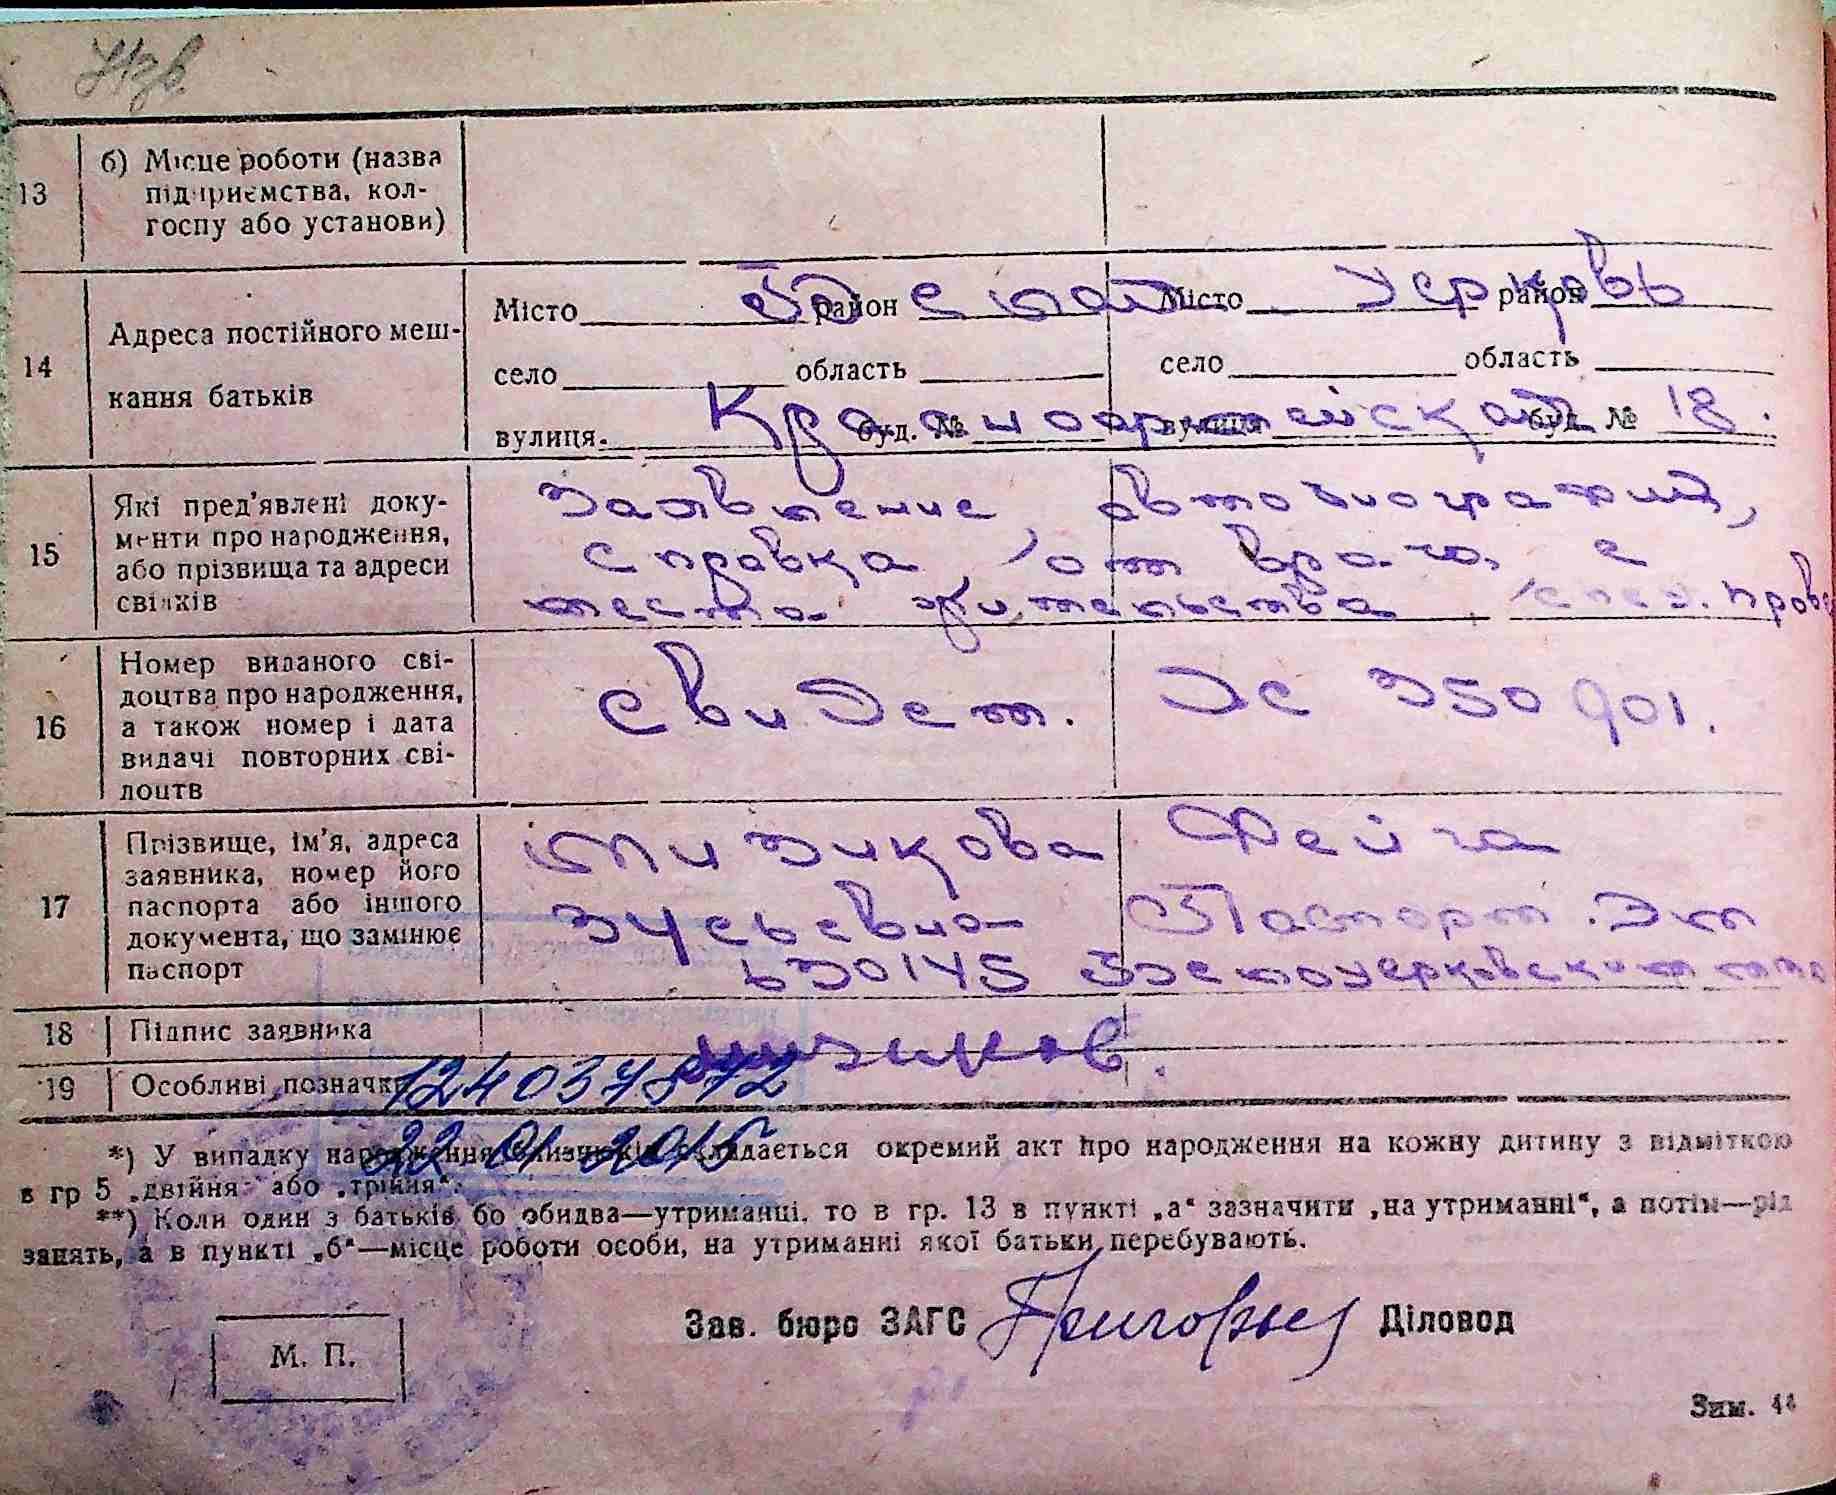 13 б) Місце роботи (назва
підприємства, кол-
госпу або установи)
14 Адреса постійного меш-
кання батьків
Місто район Місто район
Белая Церковь
село область село область
вулиця буд. № вулиця буд. №
Красноармейская 18.
15 Які пред'явлені доку-
менти про народження,
або прізвища та адреси
свідків
Заявление, автобиография,
справка, от врача, с
места жительства,
16 Номер виданого сві-
доцтва про народження,
а також номер і дата
видачі повторних сві-
доцтв
Свидет. 350901.
17 Прізвище, ім'я, адреса
заявника, номер його
паспорта або іншого
документа, що замінює
паспорт
Мизикова Фейга
Зусьевна Паспорт.
630145 Белоцерковским
18 Підпис заявника
19 Особливі позначки
22 01 2015
*) У випадку народження близнюків складається окремий акт про народження на кожну дитину з відміткою
в гр 5 „двійня“ або „трійня“.
**) Коли один з батьків бо обидва—утриманці, то в гр. 13 в пункті „а“ зазначити „на утриманні“, а потім—рід
занять, а в пункті „б“—місце роботи особи, на утриманні якої батьки перебувають.
Зав. бюро ЗАГС Діловод
М. П.
Зим. 44